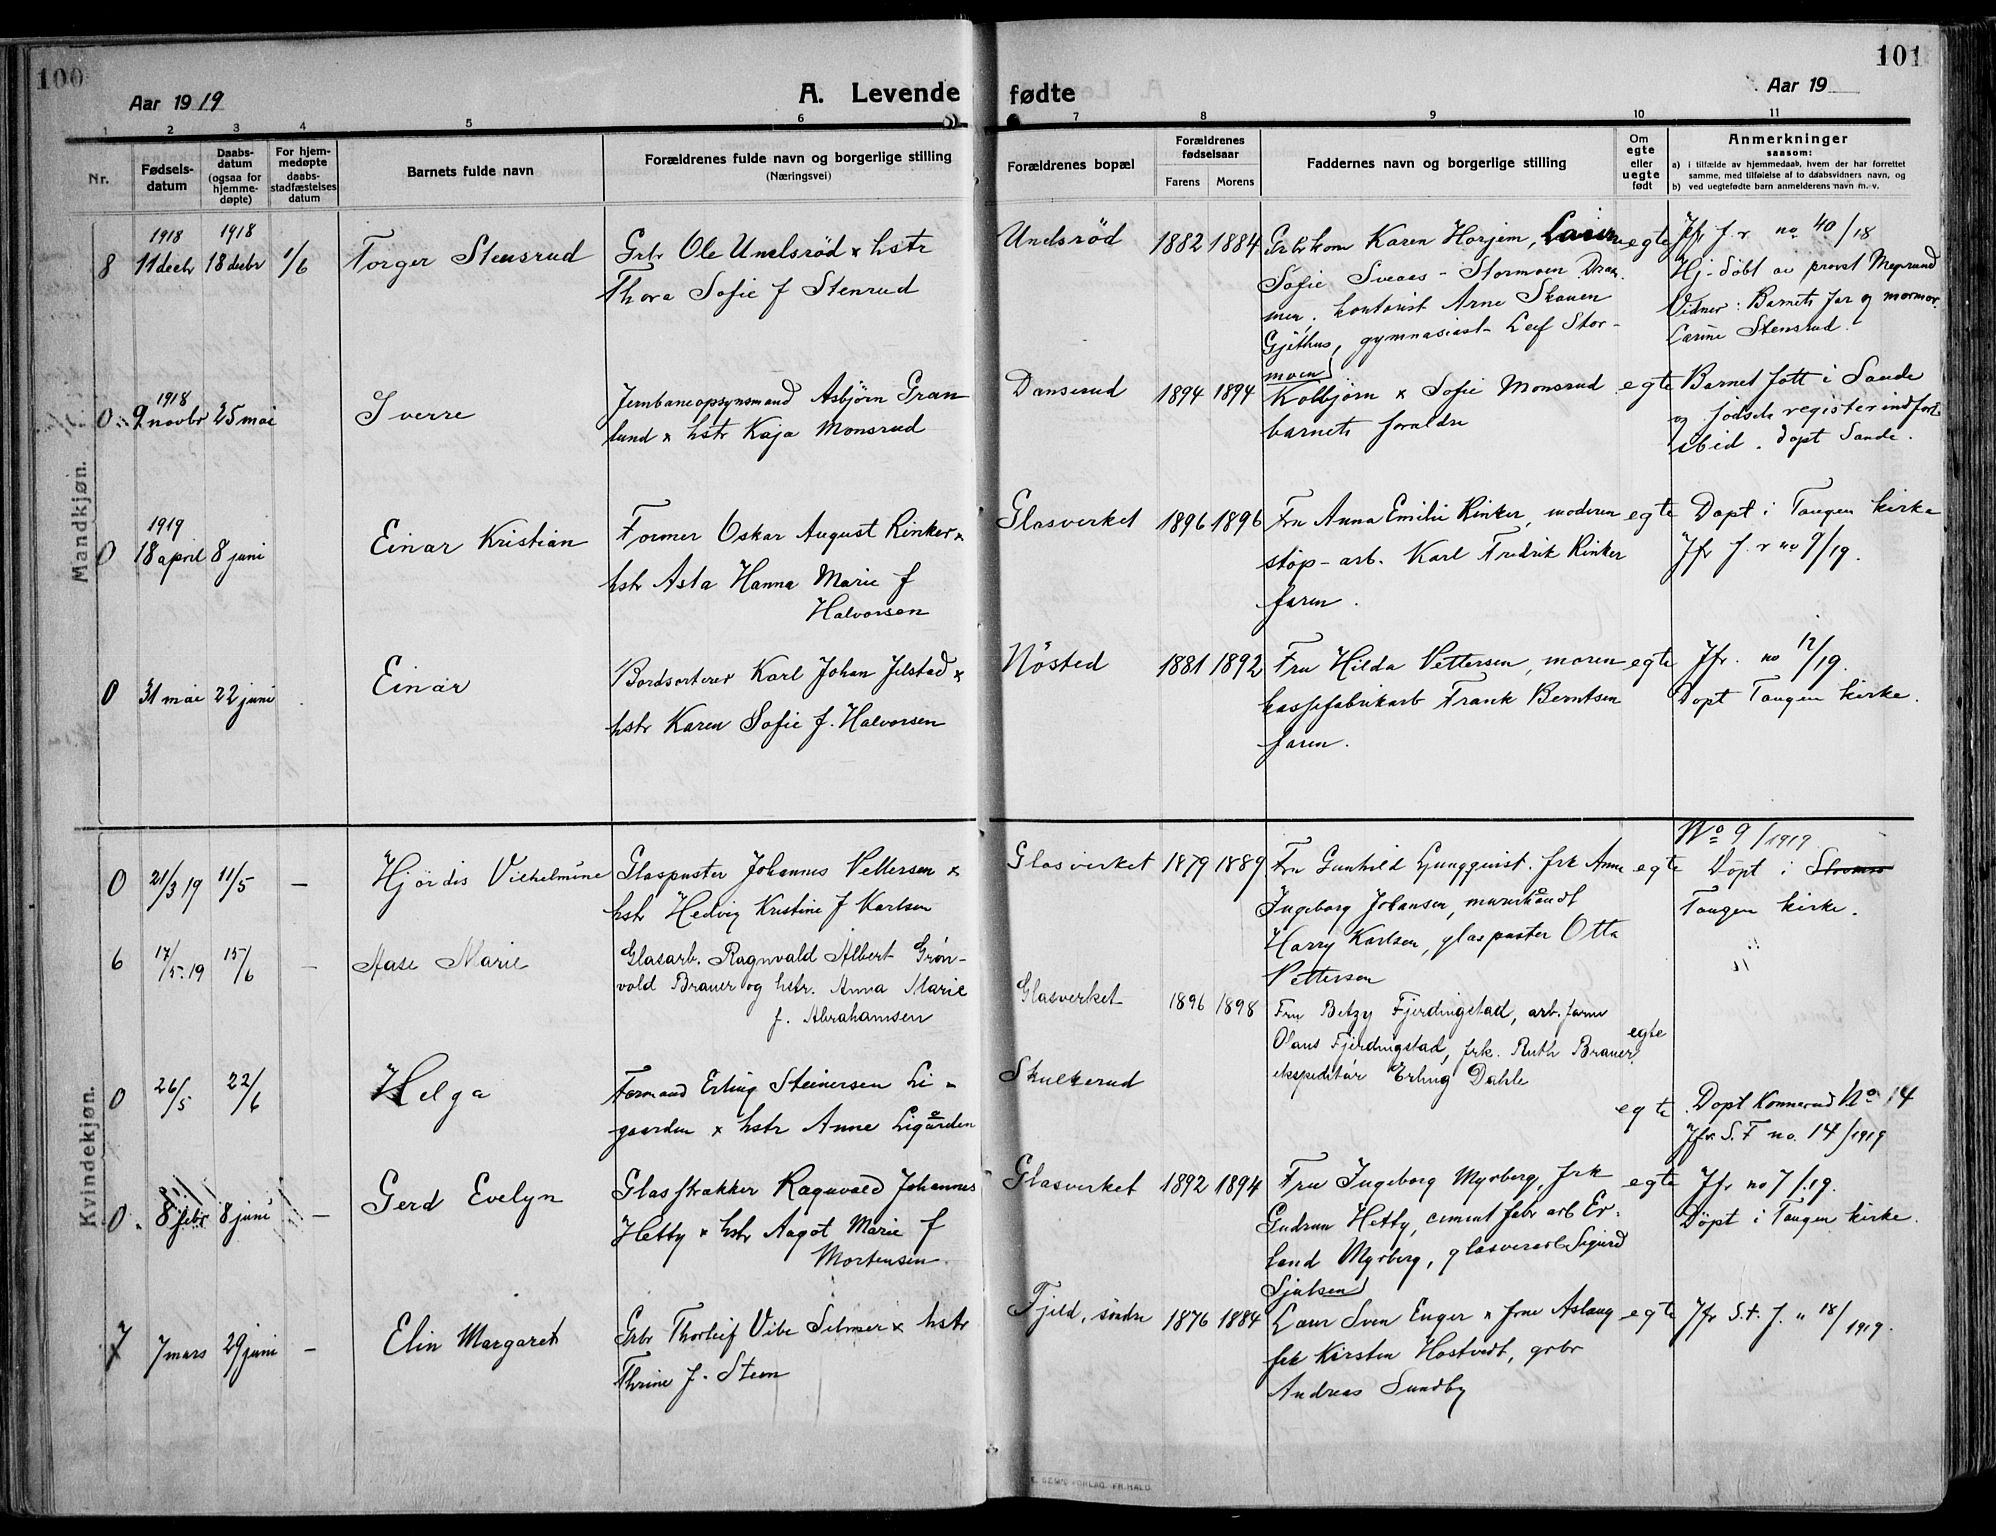 100
Aar 1919
A. Levende
fødte
Aar 19
101
1 2 3 4 5 6 7 8 9 10 11
Nr.
Fødsels-
datum
Daabs-
datum
(ogsaa for
hjemme-
døpte)
For hjem-
medøpte
daabs-
stadfæstelses
datum
Barnets fulde navn
Forældrenes fulde navn og borgerlige stilling
(Næringsvei)
Forældrenes bopæl
Forældrenes
fødselsaar
Farens Morens
Faddernes navn og borgerlige stilling
Om
egte
eller
uegte
født
Anmerkninger
saasom:
a) i tilfælde av hjemmedaab, hvem der har forrettet
samme, med tilføielse af to daabsvidners navn, og
b) ved uegtefødte barn anmelderens navn m. v.
Mandkjøn.
1918 1918
8 11 decbr 18 decbr 1/6 Torger Stensrud
Grbr Ole Undsrød x hstr
Thora Sofie f Stenrud
Undsrød 1882 1884
Grbr kone Karen Horjem, Laurine
Sofie Sveaas - Stormoen Dram
men, kontorist Arne Skauen
Gjethus, gymnasiast Leif Stor-
moen
egte
Jfr f. r no 40/18
Hj-döbt av provst Megrund
Vidner: Barnets far og mormor
Larine Stensrud.
1918
0 9 novbr 25 mai Sverre
Jernbaneopsynsmand Asbjörn Gran
lund x hstr Kaja Monsrud
Danserud 1894 1894
Kolbjørn x Sofie Monsrud
barnets foraldre
egte
Barnet fött i Sande
og födsels register indfört
sbid. döpt Sande.
1919
0 18 april 8 juni Einar Kristian
Former Oskar August Rinker x
hstr Asta Hanna Marie f
Halvorsen
Glasverket 1896 1896
Fru Anna Emilie Rinker, moderen
støp-arb. Karl Fredrik Rinker
faren.
egte
Döpt i Tangen kirke
Jfr f. r no 9/19.
0 31 mai 22 juni Einar
Bordsorterer Karl Johan Jelstad x
hstr Karen Sofie f. Halvorsen
Nösted 1881 1892
Fru Hilda Pettersen, moren
kassefabrikarb Frank Berntsen
faren.
egte
Jfr. no 12/19.
Döpt Tangen kirke.
Kvindekjøn.
0 21/3 19 11/5 — Hjördis Vilhelmine
Glaspuster Johannes Pettersen x
hstr Hedvig Kristine f Karlsen
Glasverket 1879 1889
Fru Gunhild Ljungqvist. frk Anna
Ingeborg Johansen, murerhaandt
Harry Karlsen, glaspuster Otto
Pettersen
egte
No 9/1919
Döpt i Strömsø
Tangen kirke.
6 17/5.19 15/6 — Aase Marie
Glasarb. Ragnvald Albert Grøn-
vold Brauer og hstr. Anna Marie
f. Abrahamsen
Glasverket 1896 1898
Fru Betzy Fjerdingstad, arb. form
Olaus Fjerdingstad, frk. Ruth Brauer,
ekspeditör Erling Dahle
egte
0 26/5 22/6 Helga
Formand Erling Steinersen Li-
gaarden x hstr Anne Ligården
Skulkerud
egte
Döpt Konnerud No 14
Jfr S.F no. 14/1919
0 8 febr 8 juni — Gerd Evelyn
Glasstrækker Ragnvald Johannes
Hetty x hstr Aagot Marie f
Mortensen
Glasverket 1892 1894
Fru Ingeborg Myrberg, frk
Gudrun Hetty, cement fabr arb Er-
land Myrberg, glasverarb Sigurd
Sjulsen
egte
Jfr no 7/19.
Döpt i Tangen kirke.
7 7 mars 29 juni — Elin Margaret
Grbr Thorleif Vibe Selmer x hstr
Thrine f. Steen
Fjeld, söndre 1876 1884
Læer Sven Enger x frue Aslaug
frk Kirsten Hostvedt, grbr
Andreas Sundby
egte
Jfr S.F. f. " 18/1919.